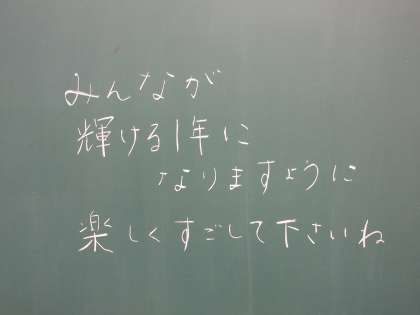 みんなが
輝ける1年に
なりますように
楽しくすごして下さいね